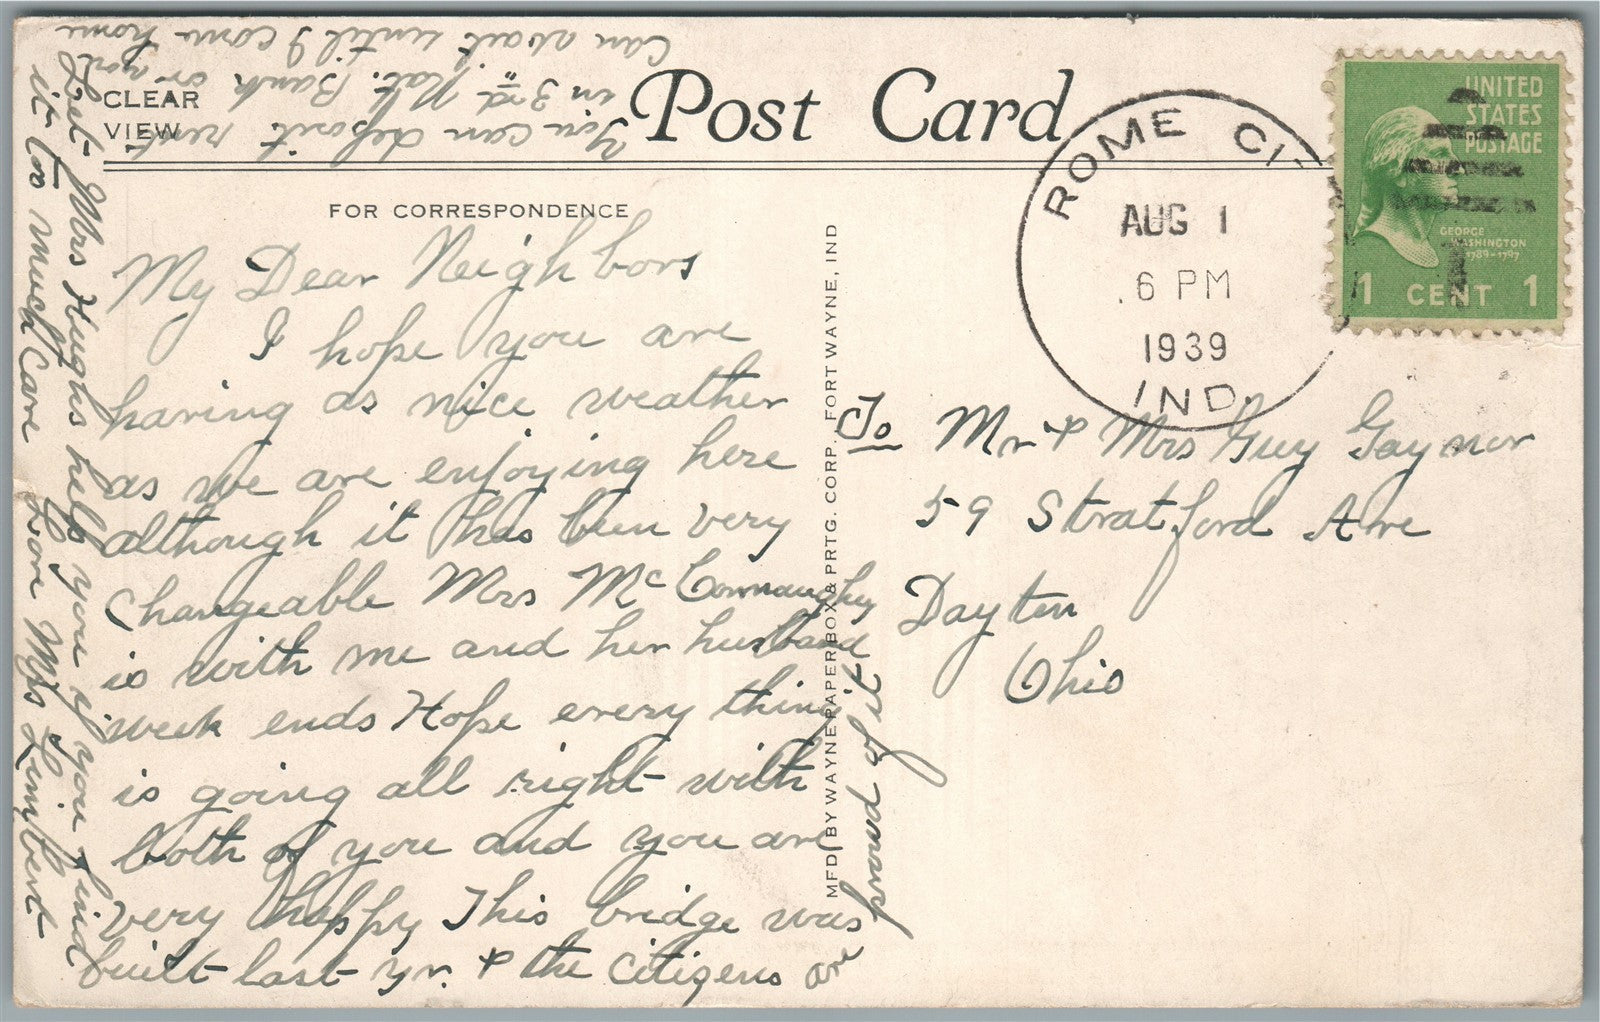 CLEAR
VIEW
Post Card
FOR CORRESPONDENCE
ROME CI
AUG 1
6 PM
1939
IND.
UNITED
STATES
POSTAGE
GEORGE
WASHINGTON
1789-1797
1 CENT 1
My Dear Neighbors
I hope you are
having as nice weather
as we are enjoying here
although it has been very
changeable Mrs McConnaughey
is with me and her husband
week ends Hope every thing
is going all right with
both of you and you are
very happy This bridge was
built last yr. & the citizens are
proud of it
You can deposit rent
in 3rd Nat. Bank or not
Can wait until I come home
Let Mrs Hughs help you if you find
it too much Care Love Mrs Limbert
MFD BY WAYNE PAPER BOX & PRTG. CORP., FORT WAYNE, IND
To Mr & Mrs Guy Gaynor
59 Stratford Ave
Dayton
Ohio